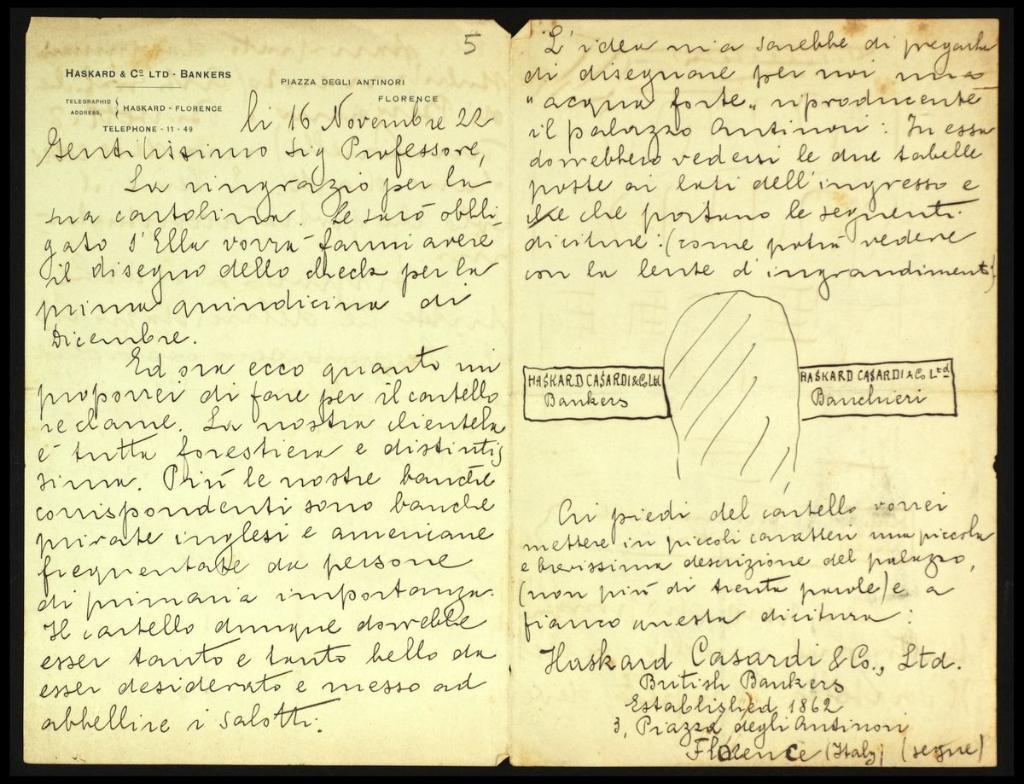 5
HASKARD & Co LTD - BANKERS
PIAZZA DEGLI ANTINORI
FLORENCE
TELEGRAPHIC ADDRESS, HASKARD - FLORENCE
TELEPHONE - 11 - 49
li 16 Novembre 22
Gentilissimo Sig Professore,
La ringrazio per la
sua cartolina. Le sarò obbli
gato s'Ella vorrà farmi avere
il disegno dello check per la
prima quindicina di
Dicembre.
Ed ora ecco quanto mi
proporrei di fare per il cartello
reclame. La nostra clientela
è tutta forestiera e distintis
sima. Più le nostre banche
corrispondenti sono banche
private inglesi e americane
frequentate da persone
di primaria importanza.
Il cartello dunque dovrebbe
esser tanto e tanto bello da
esser desiderato e messo ad
abbellire i salotti.
L'idea mia sarebbe di pregarla
di disegnare per noi una
"acqua forte" riproducente
il palazzo Antinori: In essa
dovrebbero vedersi le due tabelle
poste ai lati dell'ingresso e
che che portano le seguenti
diciture: (come potrà vedere
con la lente d'ingrandimento)
HASKARD CASARDI & Co Ltd
Bankers
HASKARD CASARDI & Co Ltd
Banchieri
Ai piedi del cartello vorrei
mettere in piccoli caratteri una piccola
e brevissima descrizione del palazzo,
(non più di trenta parole) e a
fianco questa dicitura:
Haskard Casardi & Co., Ltd.
British Bankers
Established 1862
3, Piazza degli Antinori
Florence (Italy) (segue)